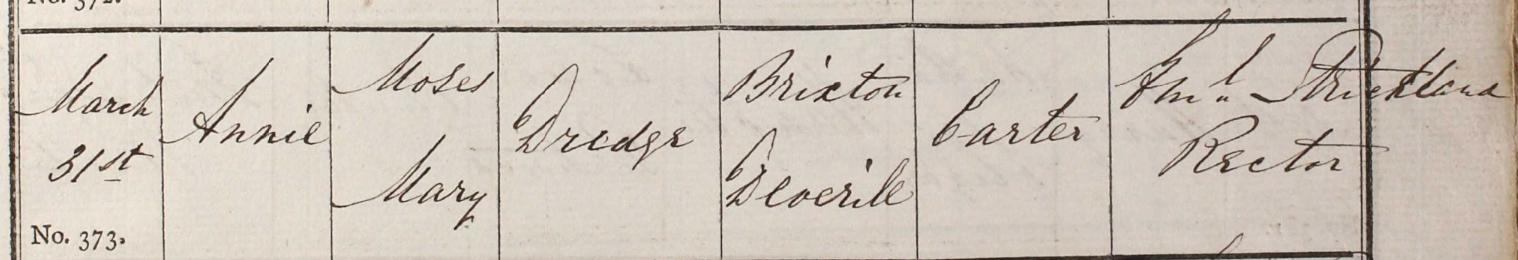 No. 372.
March
31st
Annie
Moses
Mary
Dredge
Brixton
Deverill
Carter
Eml. Strickland
Rector
No. 373.